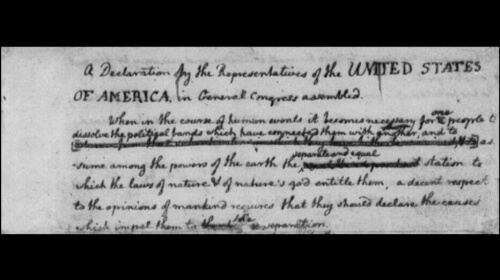 A Declaration by the Representatives of the UNITED STATES
OF AMERICA, in General Congress assembled.
When in the course of human events it becomes necessary for one people t
dissolve the political bands which have connected them with another, and to
as
-sume among the powers of the earth the separate and equal station to
which the laws of nature & of nature's god entitle them, a decent respect
to the opinions of mankind requires that they should declare the causes
which impel them to the separation.